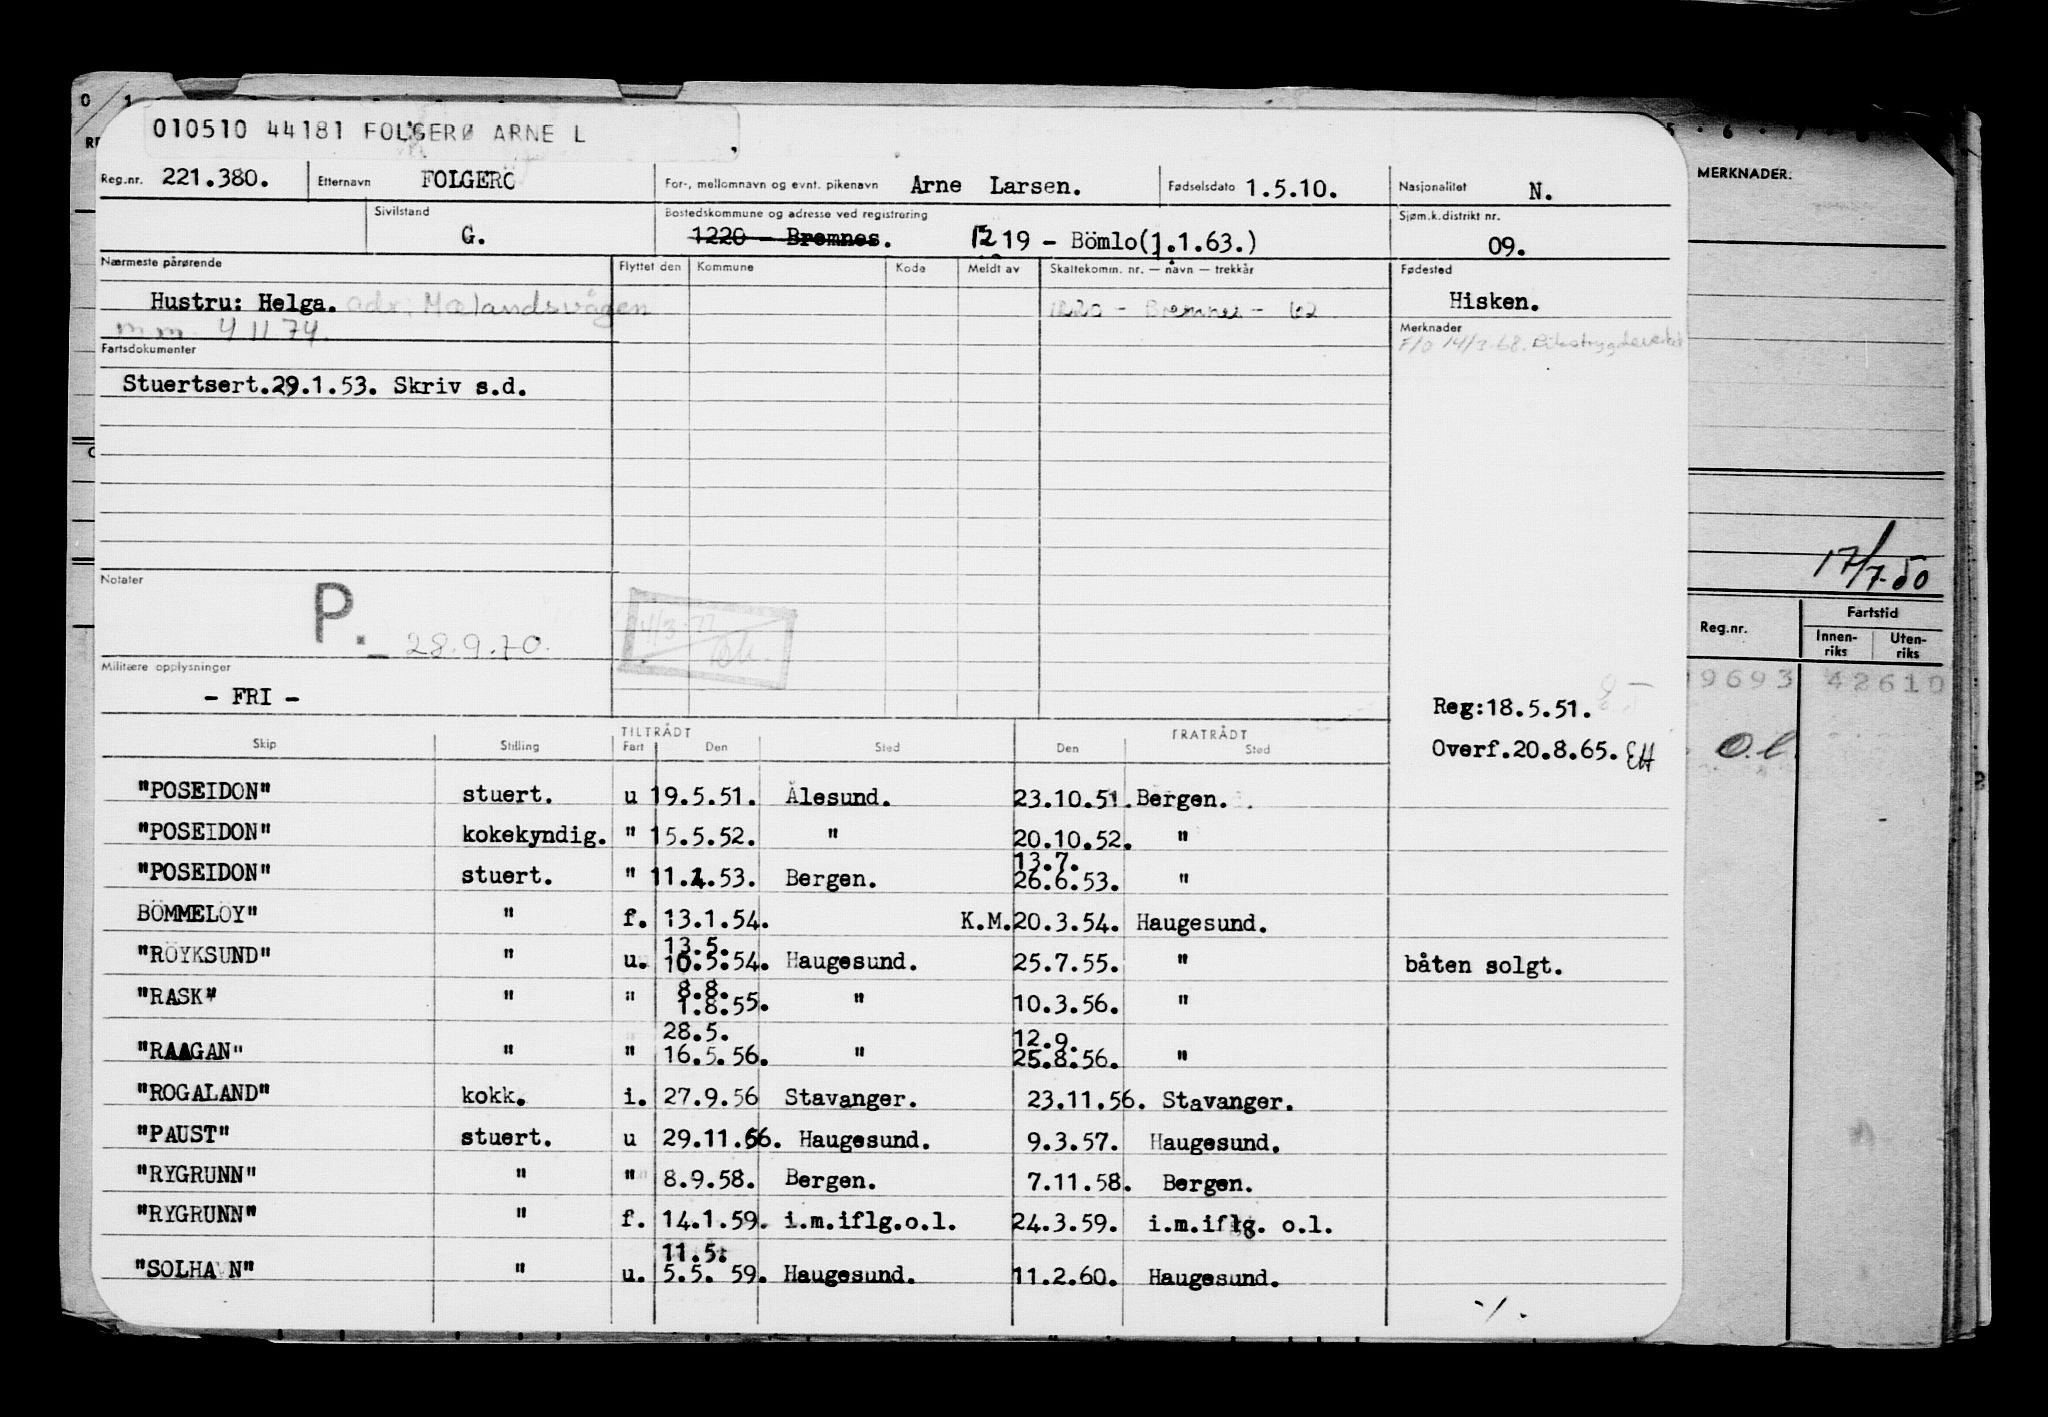 010510 44181 FOLGERØ ARNE L
MERKNADER.
Reg.nr. 221.380. Etternavn FOLGERÖ For-, mellomnavn og evnt. pikenavn Arne Larsen. Fødselsdato 1.5.10. Nasjonalitet N.
Sivilstand G. Bostedskommune og adresse ved registrering 1220 - Bremnes. 1219 - Bömlo(1.1.63.) Sjøm.k.distrikt nr. 09.
Nærmeste pårørende Flyttet den Kommune Kode Meldt av Skattekomm. nr. — navn — trekkår Fødested
Hustru: Helga. adr: Mælandsvågen 1220 - Bremnes - 62 Hisken.
m.m. 4 11 74. Merknader
F/O 14/3-68. Rikstrygdeverket
Fartsdokumenter
Stuertsert.29.1.53. Skriv s.d.
17/7-50
Notater
P. 28.9.70.
Militære opplysninger
- FRI -
Reg:18.5.51.
Overf.20.8.65. EH
Reg.nr. Fartstid
Innen-riks Uten-riks
9693 42610
O.l.
TILTRÅDT FRATRÅDT
Skip Stilling Fart Den Sted Den Sted
"POSEIDON" stuert. u 19.5.51. Ålesund. 23.10.51. Bergen.
"POSEIDON" kokekyndig. " 15.5.52. " 20.10.52. "
13.7.
"POSEIDON" stuert. " 11.1.53. Bergen. 26.6.53. "
BÖMMELÖY" " f. 13.1.54. K.M. 20.3.54. Haugesund.
13.5.
"RÖYKSUND" " u. 10.5.54. Haugesund. 25.7.55. " båten solgt.
8.8.
"RASK" " " 1.8.55. " 10.3.56. "
28.5. 12.9.
"RAAGAN" " " 16.5.56. " 25.8.56. "
"ROGALAND" kokk. i. 27.9.56 Stavanger. 23.11.56. Stavanger.
"PAUST" stuert. u 29.11.56. Haugesund. 9.3.57. Haugesund.
"RYGRUNN" " " 8.9.58. Bergen. 7.11.58. Bergen.
"RYGRUNN" " f. 14.1.59. i.m.iflg.o.l. 24.3.59. i.m.iflg. o.l.
11.5.
"SOLHAVN" " u. 5.5. 59. Haugesund. 11.2.60. Haugesund.
-/.